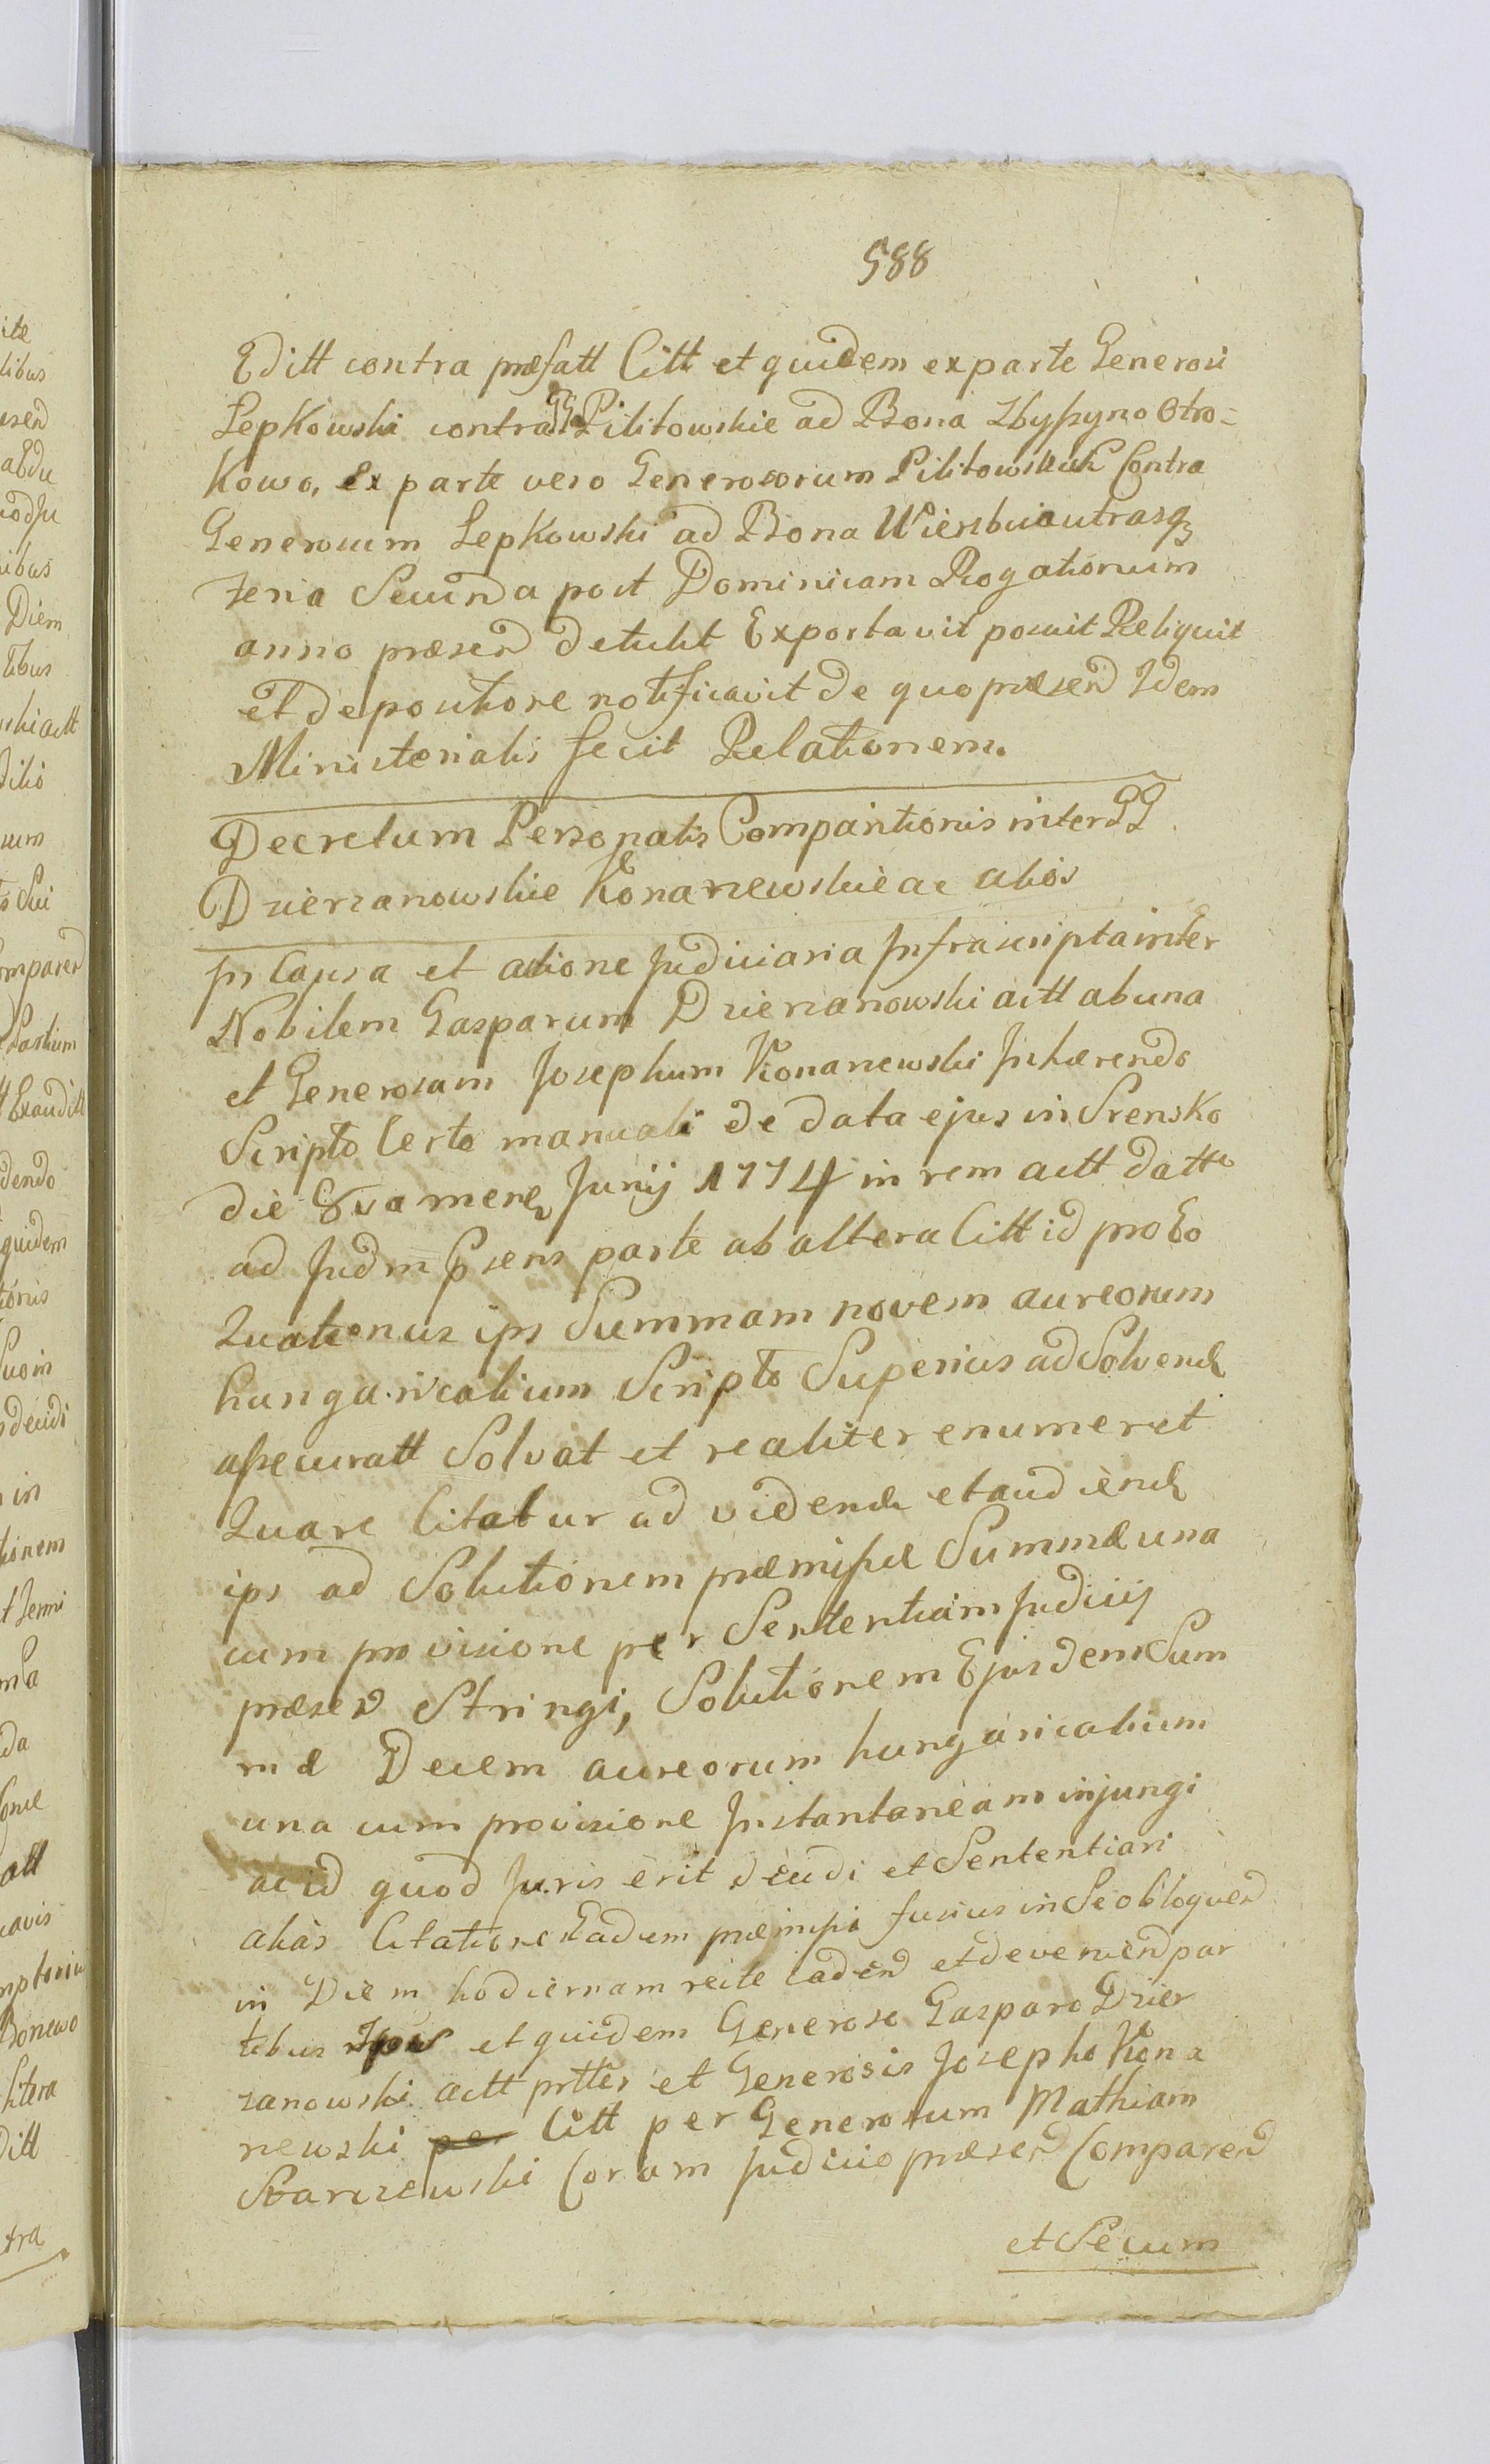 588
Editt contra præfatt Citt et quidem ex parte Generosi
Lepkowski contra GG Pilitowskie ad Bona Zbyszyno Otro=
kowo, Ex parte vero Generosorum Pilitowskich Contra
Generosum Lepkowski ad Bona Wierzbicia utrasq
Feria Secunda post Dominicam Rogationum
anno præsen detulit Exportavit posuit Reliquit
et de positione notificavit de quo præsen Idem
Ministerialis fecit Relationem.
Decretum Personalis Comparitionis inter GG
Dzierzanowskie Konarzewskie ac alios
In Causa et actione Judiciaria Infrascripta inter
Nobilem Gasparum Dzierzanowski actt ab una
et Generosum Josephum Konarzewski Inhærendo
Scripto Certo manuali de data ejus in Srensko
die 8va mens Junij 1774 in rem actt datto
ad Judm psens parte ab altera Citt id pro Eo
Quatenus ips Summam novem aureorum
hungaricalium Scripto Superius ad Solvend
assecuratt Solvat et realiter enumeret
Quare Citatur ad videnda et audiend
ips ad Solutionem præmissæ Summæ una
cum provisione per Sententiam Judicij
præsen Stringi, Solutionem Ejusdem Sum
mæ Decem aureorum hungaricalium
una cum provisione Instantaneam injungi
ac id quod Juris erit decidi et Sententiari
alias Citatione Eadem præmissa fusius in Se obloquen
in Diem hodiernam recte caden et devenien par
tibus ipis et quidem Generoso Gasparo Dzier
zanowski actt prttes et Generosis Josepho Kona
rzewski per Citt per Generosum Mathiam
Starczewski Coram Judicio præsen Comparen
et Secum